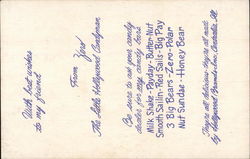 With best wishes
to my friend
From Zero
The Little Hollywood Candyman.
Be sure to ask your candy
dealer for my candy bars
Milk Shake - Payday - Butter-Nut
Smooth Sailin - Red Sails - Big Pay
3 Big Bears - Zero - Polar
Nut Sundae - Honey Bear
They're all delicious - they're all made
by Hollywood Brands, Inc. Centralia, Ill.